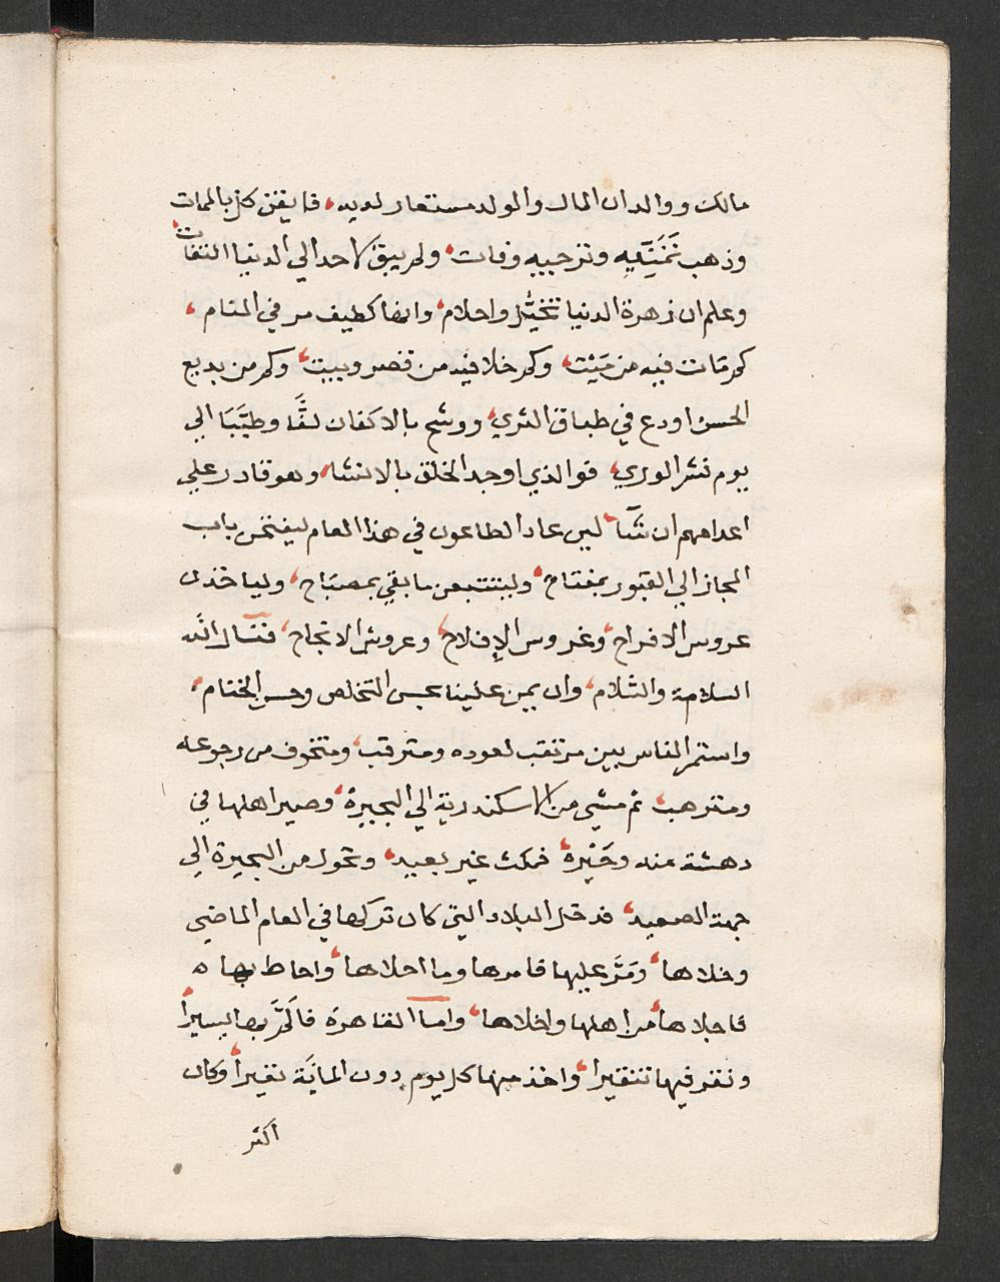 مالك ووالد ان المال والولد مستعار لديه، فايقن كل بالممات
وذهب تمنيه وترجيه وفات، ولم يبق لاحد الي الدنيا التفات
وعلم ان زهرة الدنيا تخيّل واحلام، وانها كطيف مر في المنام،
كم مات فيه من مَيْت، وكم خلا فيه من قصر وبيت، وكم من بديع
الحسن اودع في طباق الثري، ووشح بالاكفان لفًّا وطيًّا الي
يوم نشر الوري، فوالذي اوجد الخلق بالانشا، وهو قادر علي
اعدامهم ان شآ، لين عاد الطاعون في هذا العام ليفتحن باب
المجاز الي القبور بمفتاح، وليتتبعن ما بقي بمصباح، ولياخذن
عروس الافراح، وغروس الإفلاح، وعروش الانجاح، فنسال الله
السلامة والسّلام، وان يمن علينا بحسن التخلص وحسن الختام،
واستمر الناس بين مرتقب لعوده ومترقب، ومتخوف من رجوعه
ومترهب، ثم مشي من الاسكندرية الي البحيرة، وصير اهلها في
دهشة منه وحَيْرة، فمكث غير بعيد، وتحول من البحيرة الي
جهة الصعيد، فدخل البلاد التي كان تركها في العام الماضي
وخلاها، ومَرَّ عليها فامرها وما احلاها، واحاط بها ه
فاجلاها من اهلها واخلاها، واما القاهرة فالَمَّ بها يسيراً
ونقر فيها تنقيرا، واخذ منها كل يوم دون المائة نفيراً، وكان
اكثر